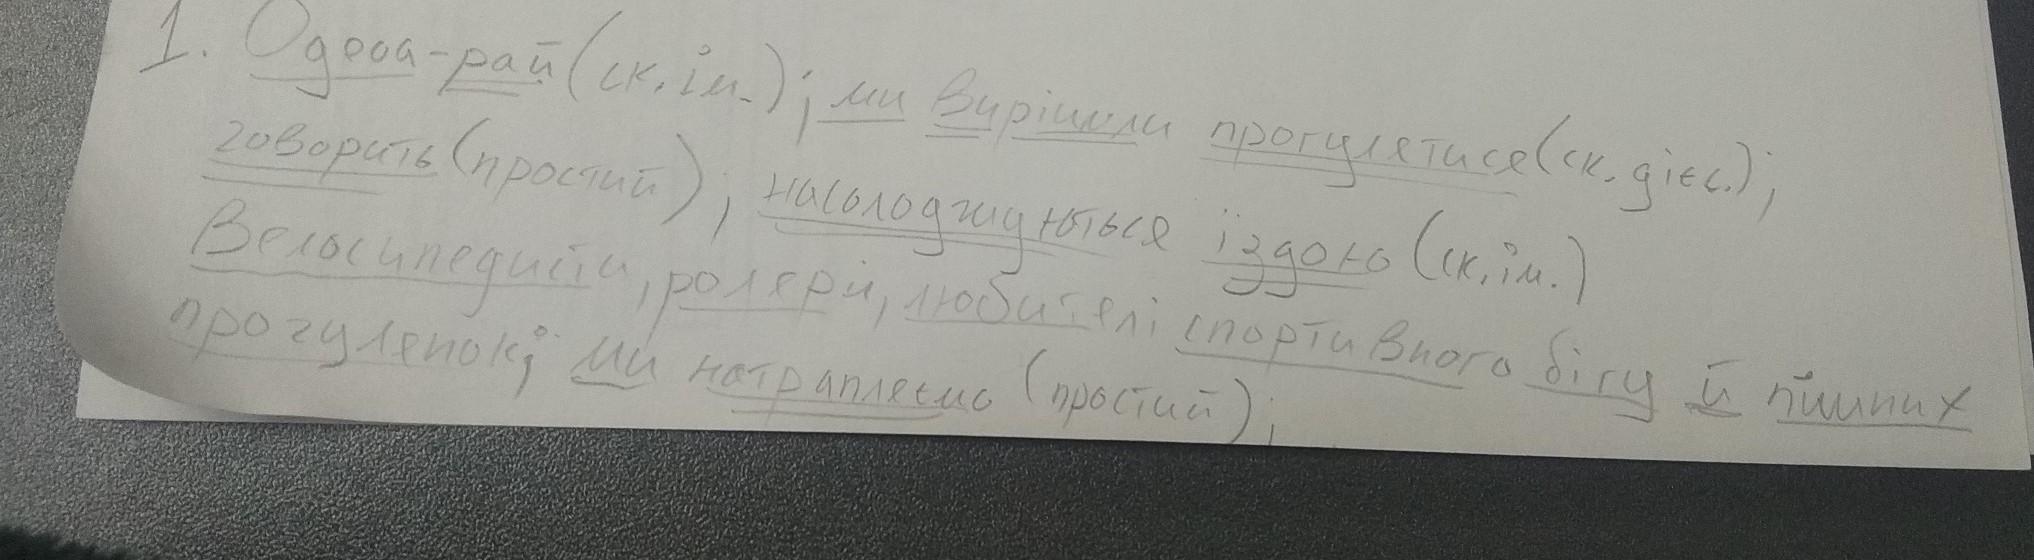 1. Одеса-рай (ск. ім.); ми вирішили прогулятися (ск. дієс.);
говорить (простий); насолоджуються їздою (ск. ім.)
Велосипедисти, ролери, любителі спортивного бігу й піших
прогулянок; ми натрапляємо (простий);